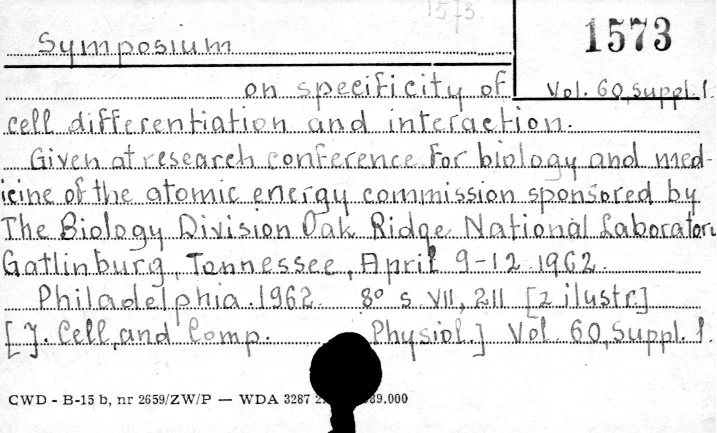 1573.
1573
Symposium
on specificity of Vol. 60, suppl. 1.
cell differentiation and interaction.
Given at research conference for biology and med-
icine of the atomic energy commission sponsored by
The Biology Division Oak Ridge National Laboratory
Gatlinburg, Tennessee, April 9-12 1962.
Philadelphia 1962. 8° s. VII, 211 [z ilustr.]
[J. Cell. and Comp. Physiol.] Vol. 60, Suppl. 1.
CWD - B-15 b, nr 2659/ZW/P — WDA 3287 89.000